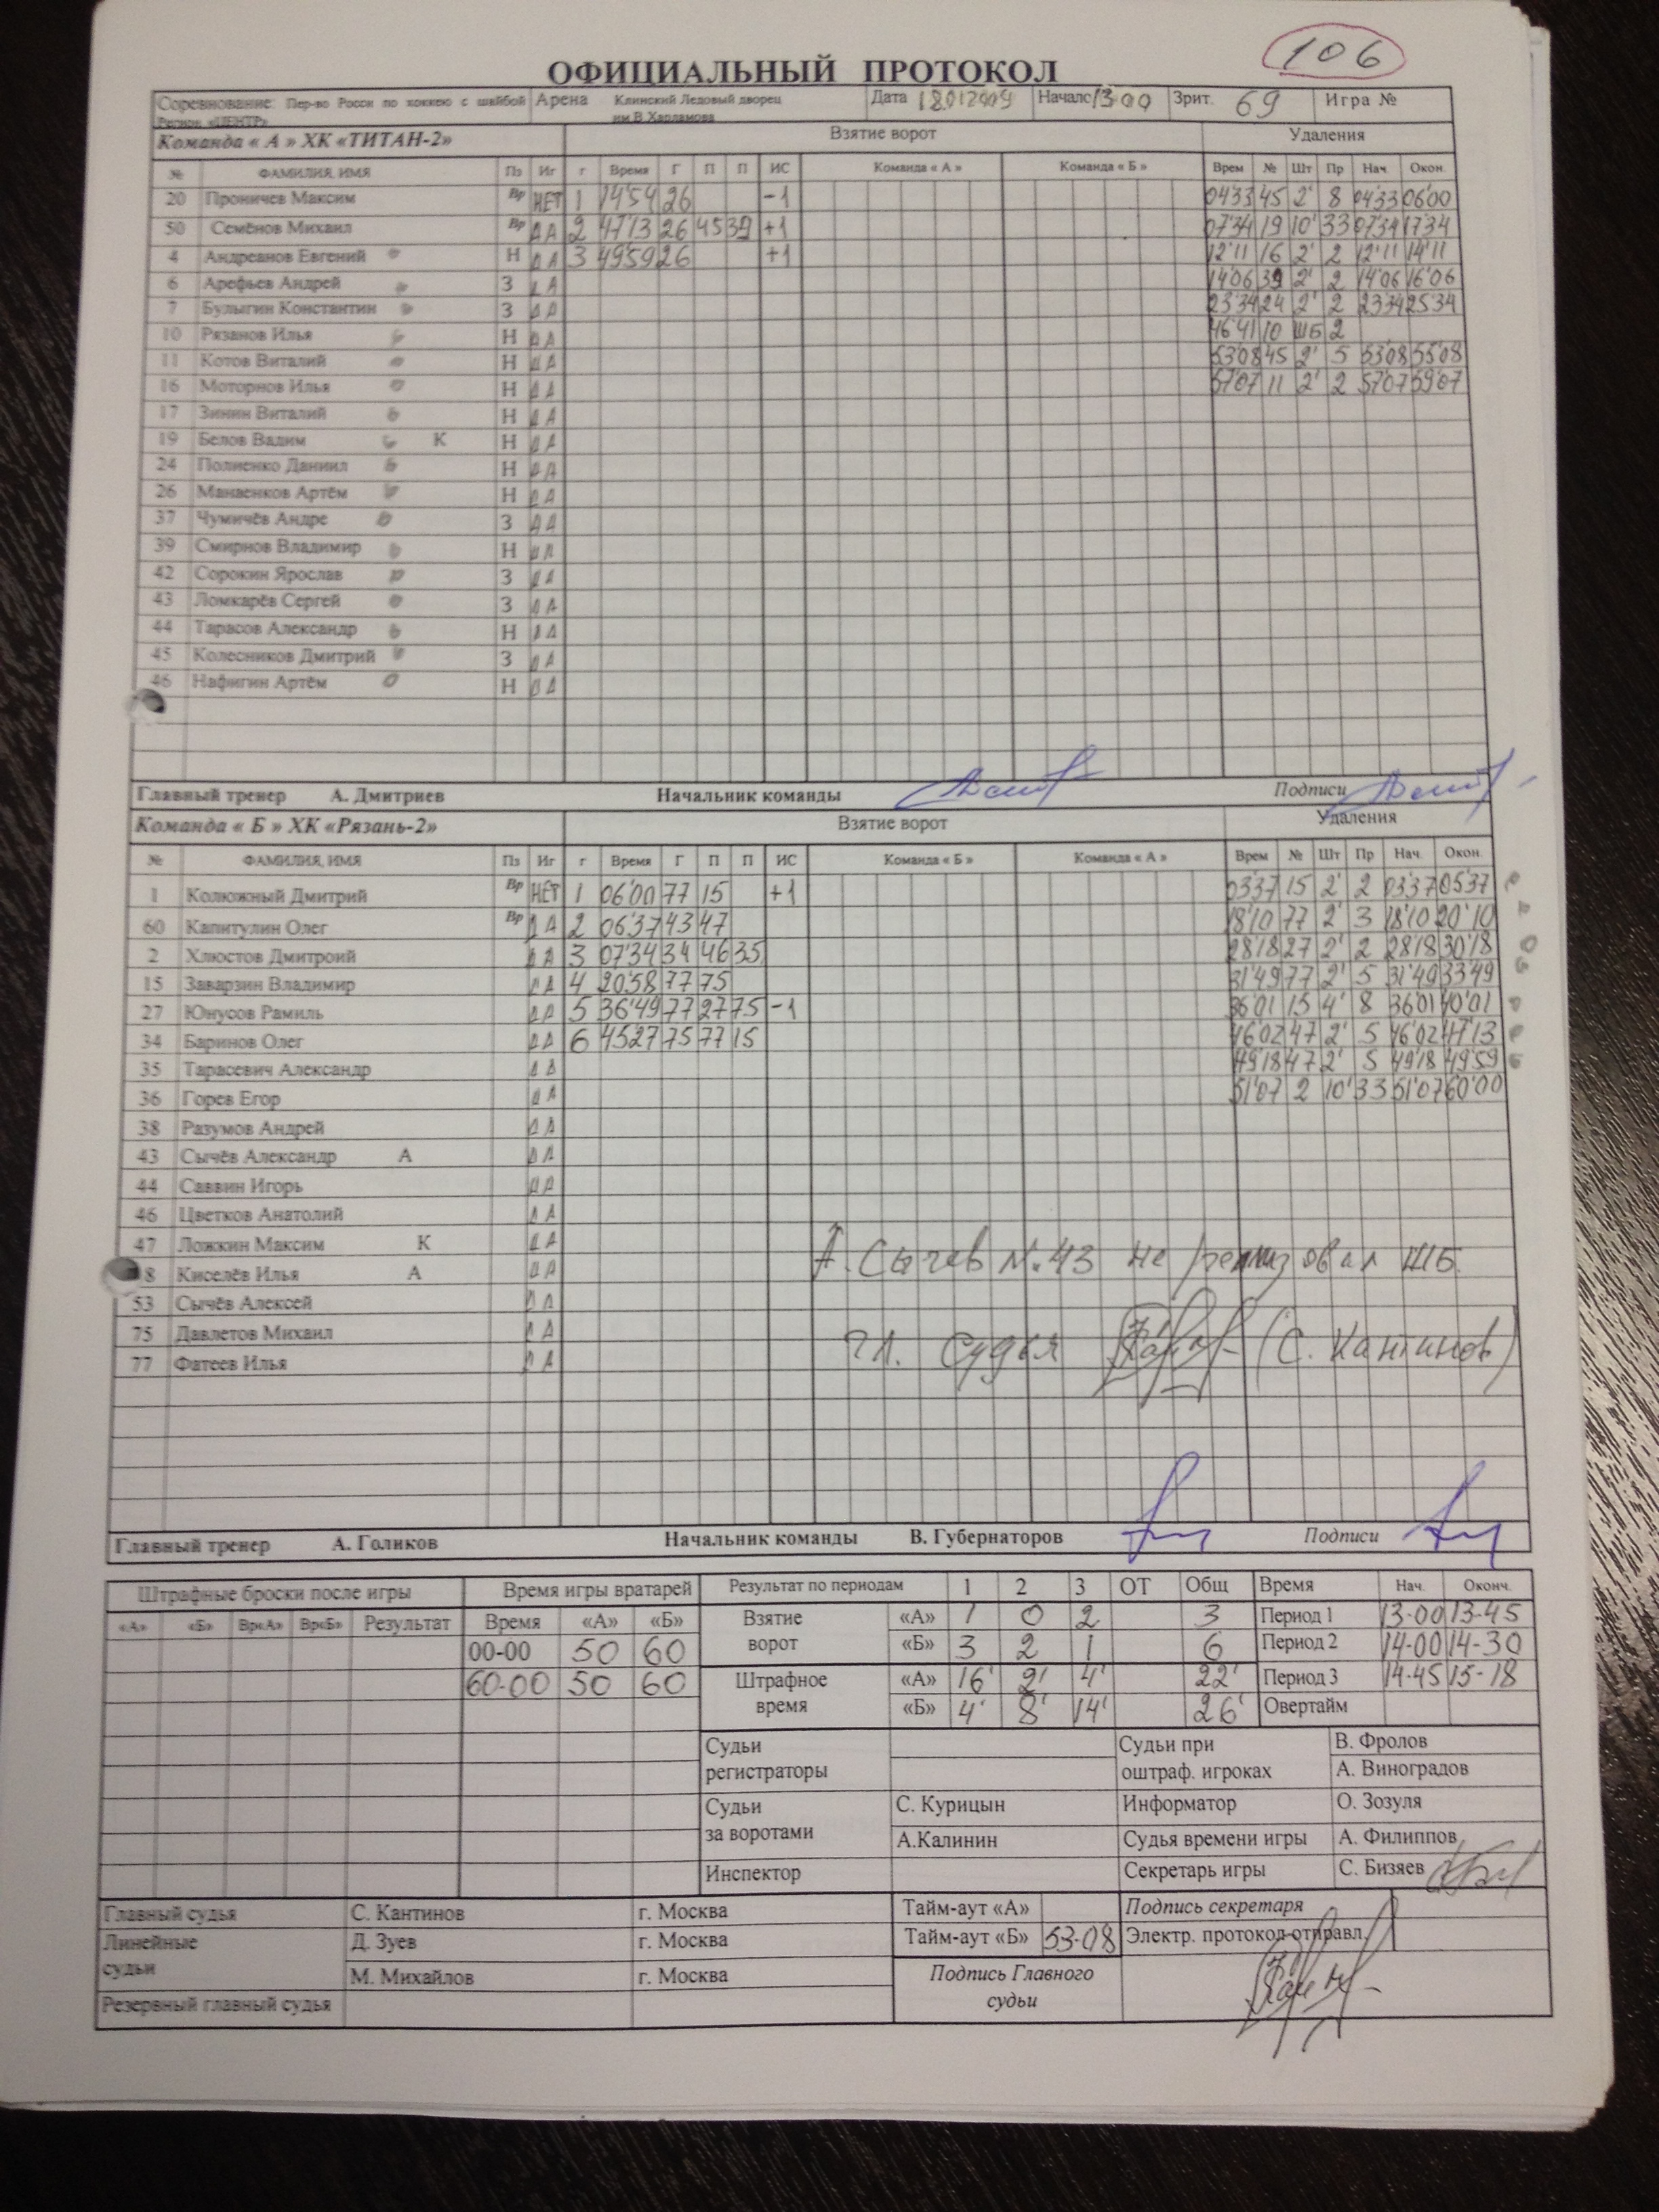 106
ОФИЦИАЛЬНЫЙ ПРОТОКОЛ
Соревнование: Пер-во Росси по хоккею с шайбой Арена Клинский Ледовый дворец Дата 18012009 Начало 13 00 Зрит. 69 Игра №
Регион «ЦЕНТР» им В Харламова
Команда « А » ХК «ТИТАН-2» Взятие ворот Удаления
№ ФАМИЛИЯ, ИМЯ Пз Иг г Время Г П П ИС Команда « А » Команда « Б » Врем № Шт Пр Нач Окон.
20 Проничев Максим Вр НЕТ 1 14'54 26 -1 04'33 45 2' 8 04'33 06'00
50 Семёнов Михаил Вр ДА 2 47'13 26 45 39 +1 07'34 19 10' 33 07'34 17'34
4 Андреанов Евгений Н ДА 3 49'59 26 +1 12'11 16 2' 2 12'11 14'11
6 Арефьев Андрей З ДА 14'06 39 2' 2 14'06 16'06
7 Булыгин Константин З ДА 23'34 24 2' 2 23'34 25'34
10 Рязанов Илья Н ДА 46'41 10 ШБ 2
11 Котов Виталий Н ДА 53'08 45 2' 5 53'08 55'08
16 Моторнов Илья Н ДА 57'07 11 2' 2 57'07 59'07
17 Зинин Виталий Н ДА
19 Белов Вадим К Н ДА
24 Полиенко Даниил Н ДА
26 Манзенков Артём Н ДА
37 Чумичёв Андре З ДА
39 Смирнов Владимир Н ДА
42 Сорокин Ярослав З ДА
43 Ломкарёв Сергей З ДА
44 Тарасов Александр Н ДА
45 Колесников Дмитрий З ДА
46 Нафигин Артём Н ДА
Главный тренер А. Дмитриев Начальник команды Подписи
Команда « Б » ХК «Рязань-2» Взятие ворот Удаления
№ ФАМИЛИЯ, ИМЯ Пз Иг г Время Г П П ИС Команда « Б » Команда « А » Врем № Шт Пр Нач. Окон.
1 Колюжный Дмитрий Вр НЕТ 1 06'00 77 15 +1 03'37 15 2' 2 03'37 05'37
60 Капитулин Олег Вр ДА 2 06'37 43 47 18'10 77 2' 3 18'10 20'10
2 Хлюстов Дмитроий ДА 3 07'34 34 46 35 28'18 27 2' 2 28'18 30'18
15 Заварзин Владимир ДА 4 20'58 77 75 31'49 77 2' 5 31'49 33'49
27 Юнусов Рамиль ДА 5 36'49 77 27 75 -1 36'01 15 4' 8 36'01 40'01
34 Баринов Олег ДА 6 45'27 75 77 15 46'02 47 2' 5 46'02 47'13
35 Тарасевич Александр ДА 49'18 47 2' 5 49'18 49'59
36 Горев Егор ДА 51'07 2 10' 33 51'07 60'00
38 Разумов Андрей ДА
43 Сычёв Александр А ДА
44 Саввин Игорь ДА
46 Цветков Анатолий ДА
47 Ложкин Максим К ДА
8 Киселёв Илья А ДА
53 Сычёв Алексей ДА
75 Давлетов Михаил ДА
77 Фатеев Илья ДА
А. Сычев №.43 не реализовал ШБ.
Гл. Судья (С. Кантинов)
Главный тренер А. Голиков Начальник команды В. Губернаторов Подписи
Штрафные броски после игры Время игры вратарей Результат по периодам 1 2 3 ОТ Общ Время Нач. Оконч.
«А» «Б» Вр«А» Вр«Б» Результат Время «А» «Б» Взятие ворот «А» 1 0 2 3 Период 1 13-00 13-45
00-00 50 60 «Б» 3 2 1 6 Период 2 14-00 14-30
60-00 50 60 Штрафное время «А» 16' 2' 4' 22' Период 3 14-45 15-18
«Б» 4' 8' 14' 26' Овертайм
Судьи регистраторы Судьи при оштраф. игроках В. Фролов
А. Виноградов
Судьи за воротами С. Курицын Информатор О. Зозуля
А.Калинин Судья времени игры А. Филиппов
Инспектор Секретарь игры С. Бизяев
Главный судья С. Кантинов г. Москва Тайм-аут «А» Подпись секретаря
Линейные судьи Д. Зуев г. Москва Тайм-аут «Б» 53-08 Электр. протокол отправл.
М. Михайлов г. Москва Подпись Главного судьи
Резервный главный судья